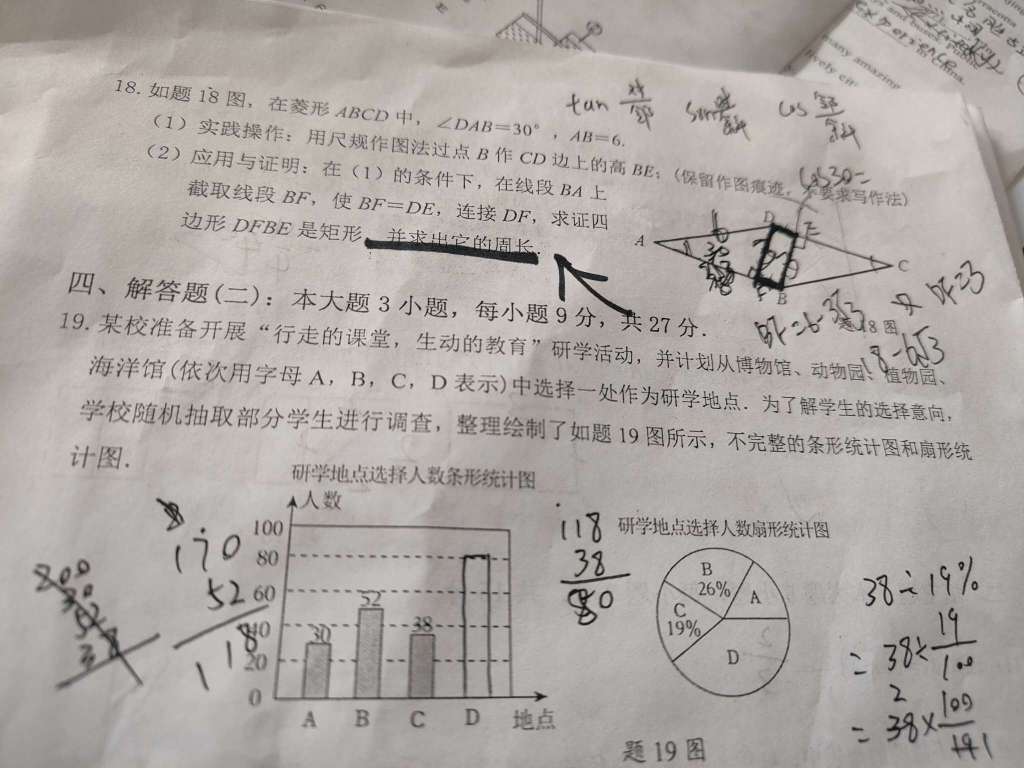 18. 如题18图，在菱形ABCD中，∠DAB=30°，AB=6.
（1）实践操作：用尺规作图法过点B作CD边上的高BE；(保留作图痕迹，不要求写作法)
（2）应用与证明：在（1）的条件下，在线段BA上
截取线段BF，使BF=DE，连接DF，求证四
边形DFBE是矩形，并求出它的周长.
tan 对/邻 sin 对/斜 cos 邻/斜
cos30=
A
D
E
C
B
F
题18图
BF=6-3√3
DF=3
18-6√3
四、解答题(二)：本大题3小题，每小题9分，共27分.
19. 某校准备开展“行走的课堂，生动的教育”研学活动，并计划从博物馆、动物园、植物园、
海洋馆(依次用字母A，B，C，D表示)中选择一处作为研学地点．为了解学生的选择意向，
学校随机抽取部分学生进行调查，整理绘制了如题19图所示，不完整的条形统计图和扇形统
计图.
研学地点选择人数条形统计图
人数
100
80
60
40
20
0
30
52
38
A B C D 地点
170
52
118
200
30
52
38
118
38
80
研学地点选择人数扇形统计图
B
26%
A
C
19%
D
38÷19%
=38×19/100
=38×100/19
题19图